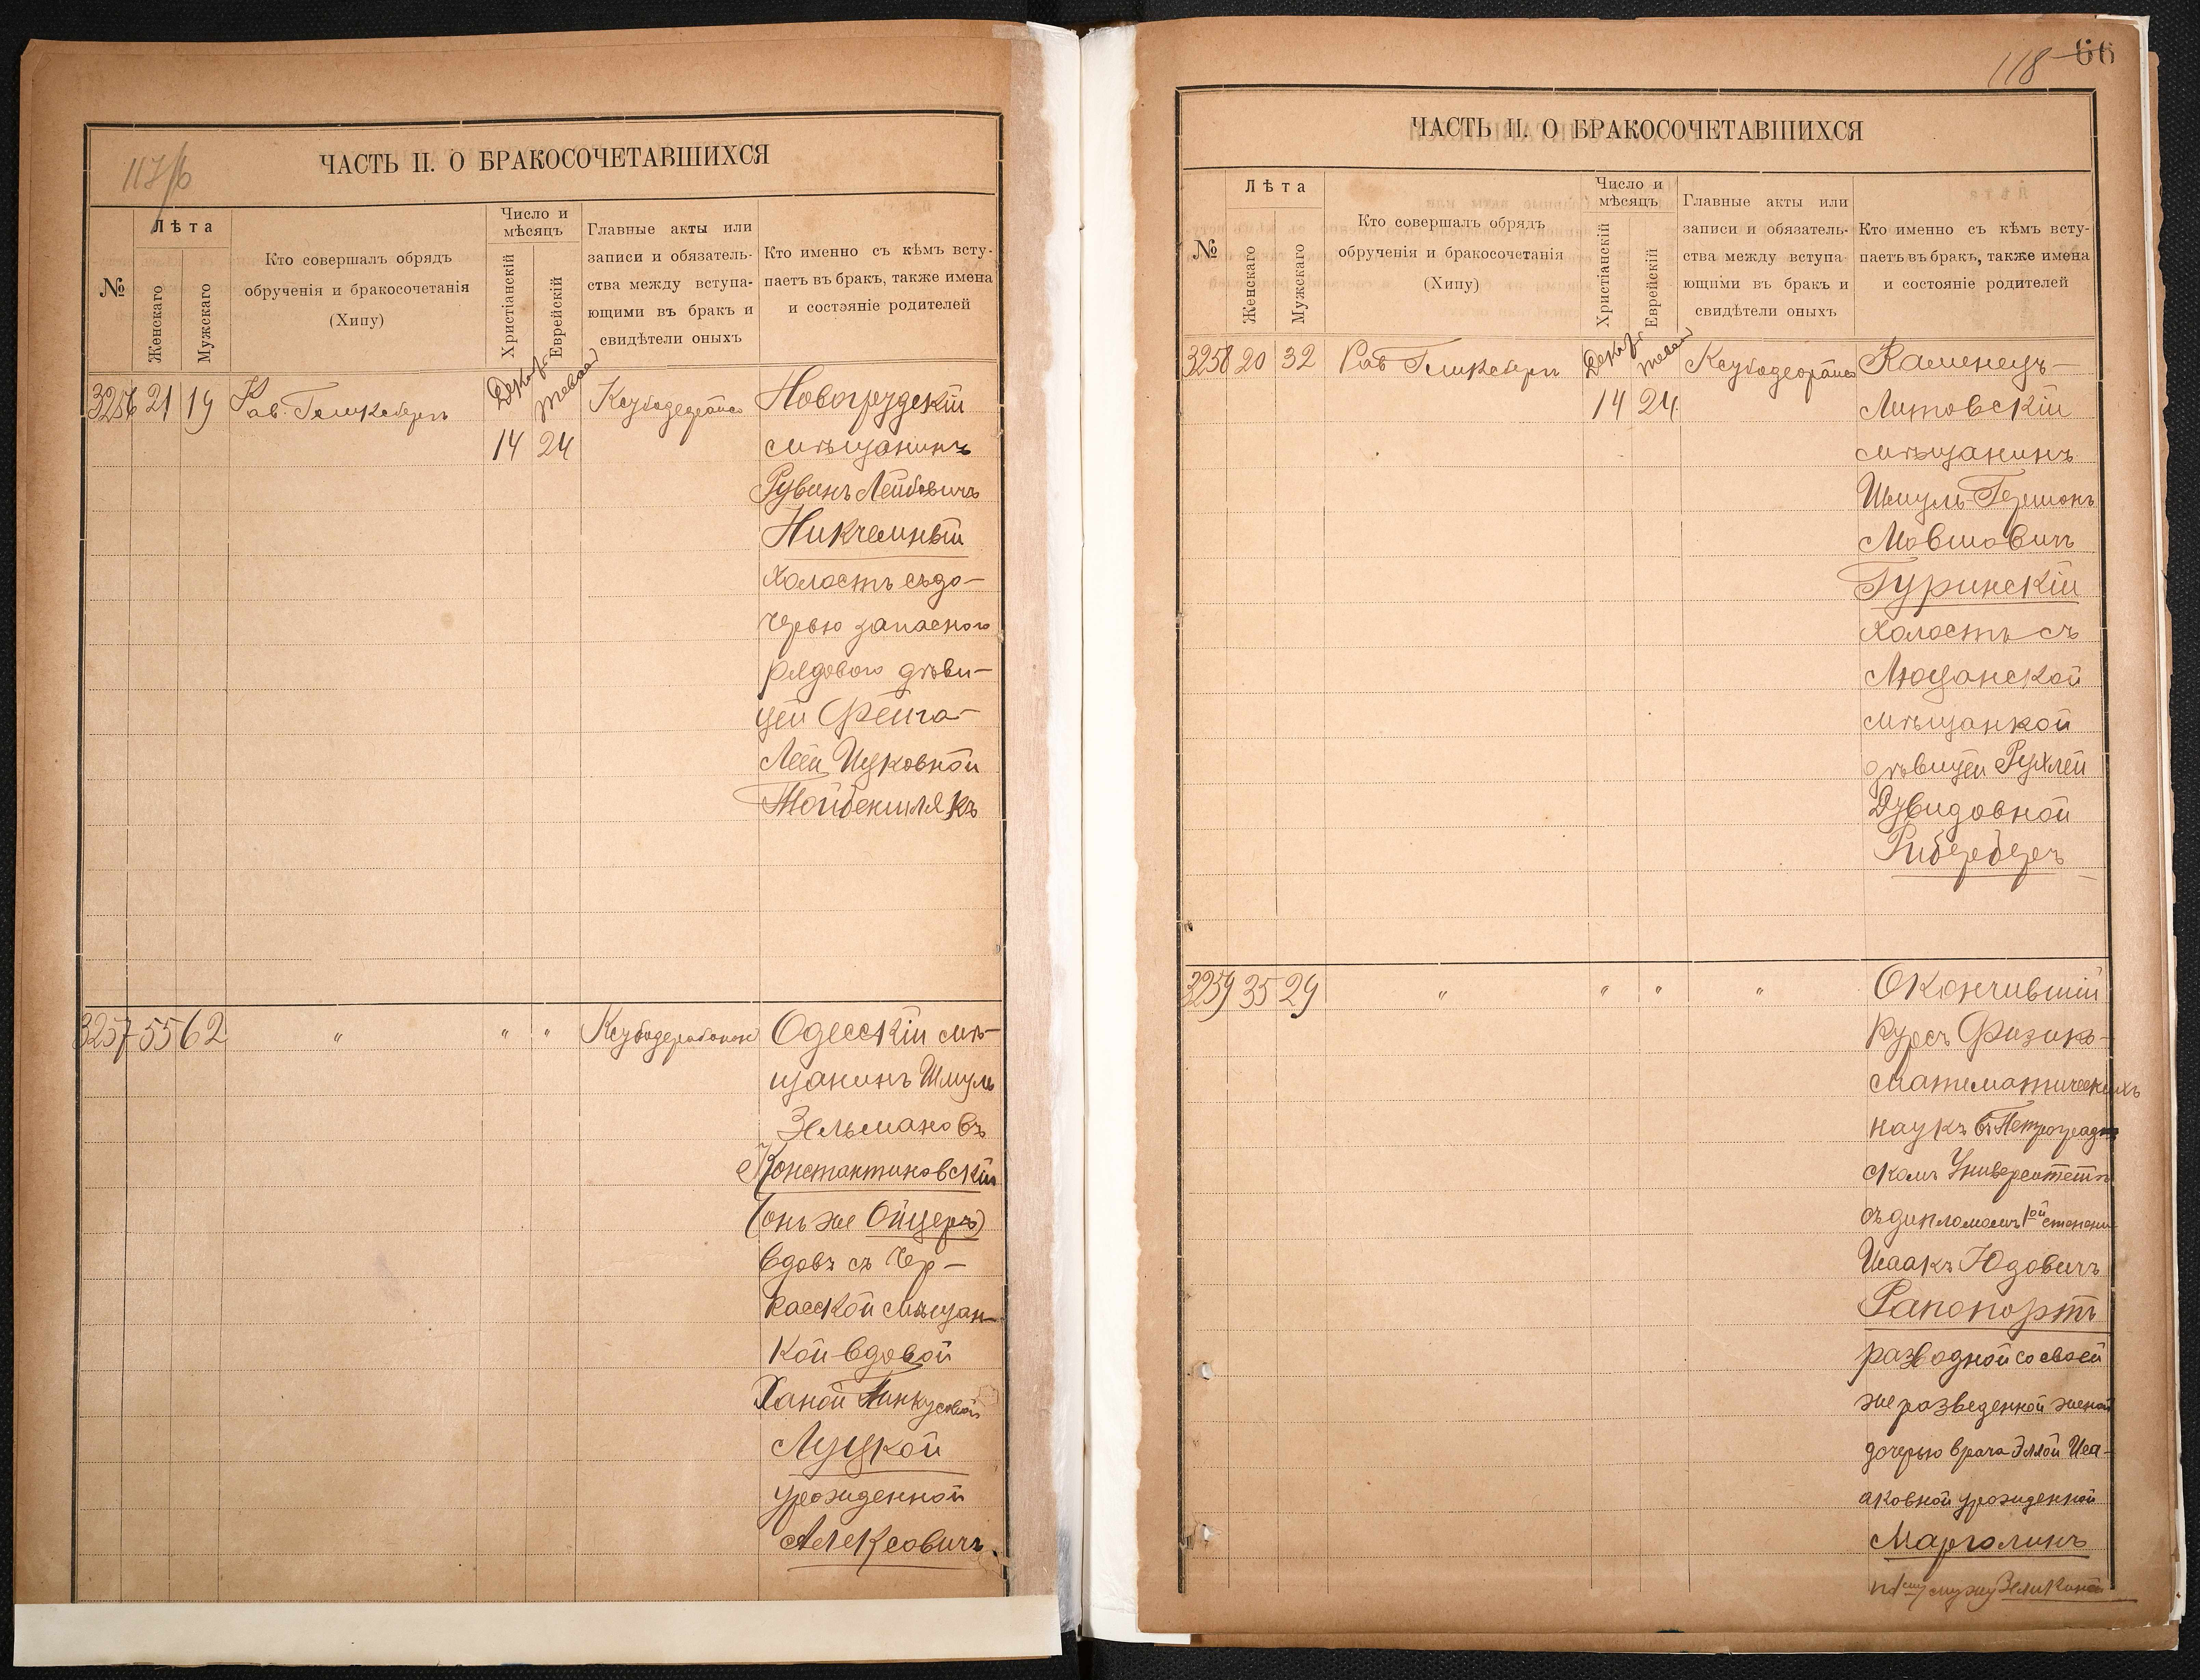 117/б
ЧАСТЬ II. О БРАКОСОЧЕТАВШИХСЯ
№
Лѣта
Женскаго
Мужскаго
Кто совершалъ обрядъ
обрученія и бракосочетанія
(Хипу)
Число и
мѣсяцъ
Христіанскій
Еврейскій
Главные акты или
записи и обязатель-
ства между вступа-
ющими въ бракъ и
свидѣтели оныхъ
Кто именно съ кѣмъ всту-
паетъ въ бракъ, также имена
и состояніе родителей
3256 21 19
Декабр
14 24
Новогрудскій
мѣщанинъ
Рувинъ Лейбовичъ
Никчемный
холостъ съ до-
черью запасного
рядового дѣви-
цей Фейга-
Леей Ицковной
3257 55 62
" " "
Одесскій мѣ-
щанинъ Шмуль
Зельмановъ
Константиновскій
(онъ же Ойцеръ)
вдовъ съ Чер-
касской мѣщан-
кой вдовой
Ханой
Луцкой
урожденной
Алексовичъ
118 66
ЧАСТЬ II. О БРАКОСОЧЕТАВШИХСЯ
№
Лѣта
Женскаго
Мужскаго
Кто совершалъ обрядъ
обрученія и бракосочетанія
(Хипу)
Число и
мѣсяцъ
Христіанскій
Еврейскій
Главные акты или
записи и обязатель-
ства между вступа-
ющими въ бракъ и
свидѣтели оныхъ
Кто именно съ кѣмъ всту-
паетъ въ бракъ, также имена
и состояніе родителей
3258 20 32
Декабр
14 24
Каменецъ-
Литовскій
мѣщанинъ
Шмуль-Гершонъ
Мовшовичъ
Гуринскій
холостъ съ
Люцанской
мѣщанкой
дѣвицей Рухлей
Дувидовной
3259 35 29
" " " "
Окончившій
курсъ Физико-
математическихъ
наукъ въ Петроград-
скомъ Университетѣ
съ дипломомъ 1ой степени
Исаакъ Юдовичъ
Рапопортъ
разводной со своей
же разведенной женой
дочерью врача Эллой Иса-
аковной урожденной
Марголинъ